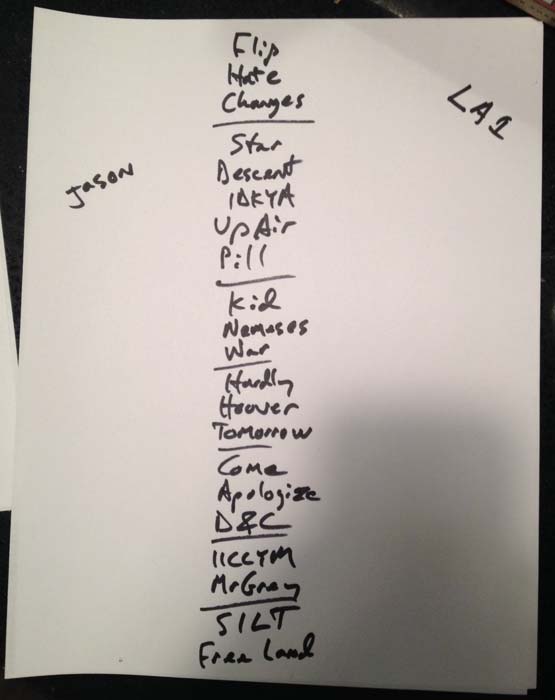 Flip
Hate
Changes
LA1
Jason
Star
Descent
IDKYA
Up Air
Pill
Kid
Nemeses
War
Hardly
Hoover
Tomorrow
Come
Apologize
D&C
IICCYM
Mr Grey
SILT
Free Land